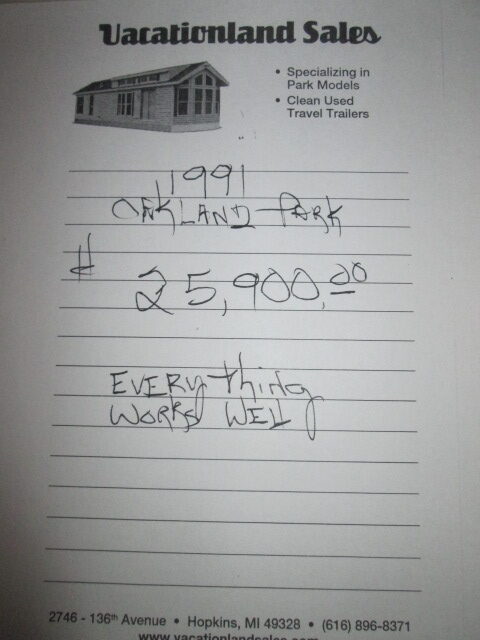 Vacationland Sales
• Specializing in
Park Models
• Clean Used
Travel Trailers
1991
OAKLAND PARK
$ 25,900.00
EVERything
WORKS WELL
2746 - 136th Avenue • Hopkins, MI 49328 • (616) 896-8371
www.vacationlandsales.com